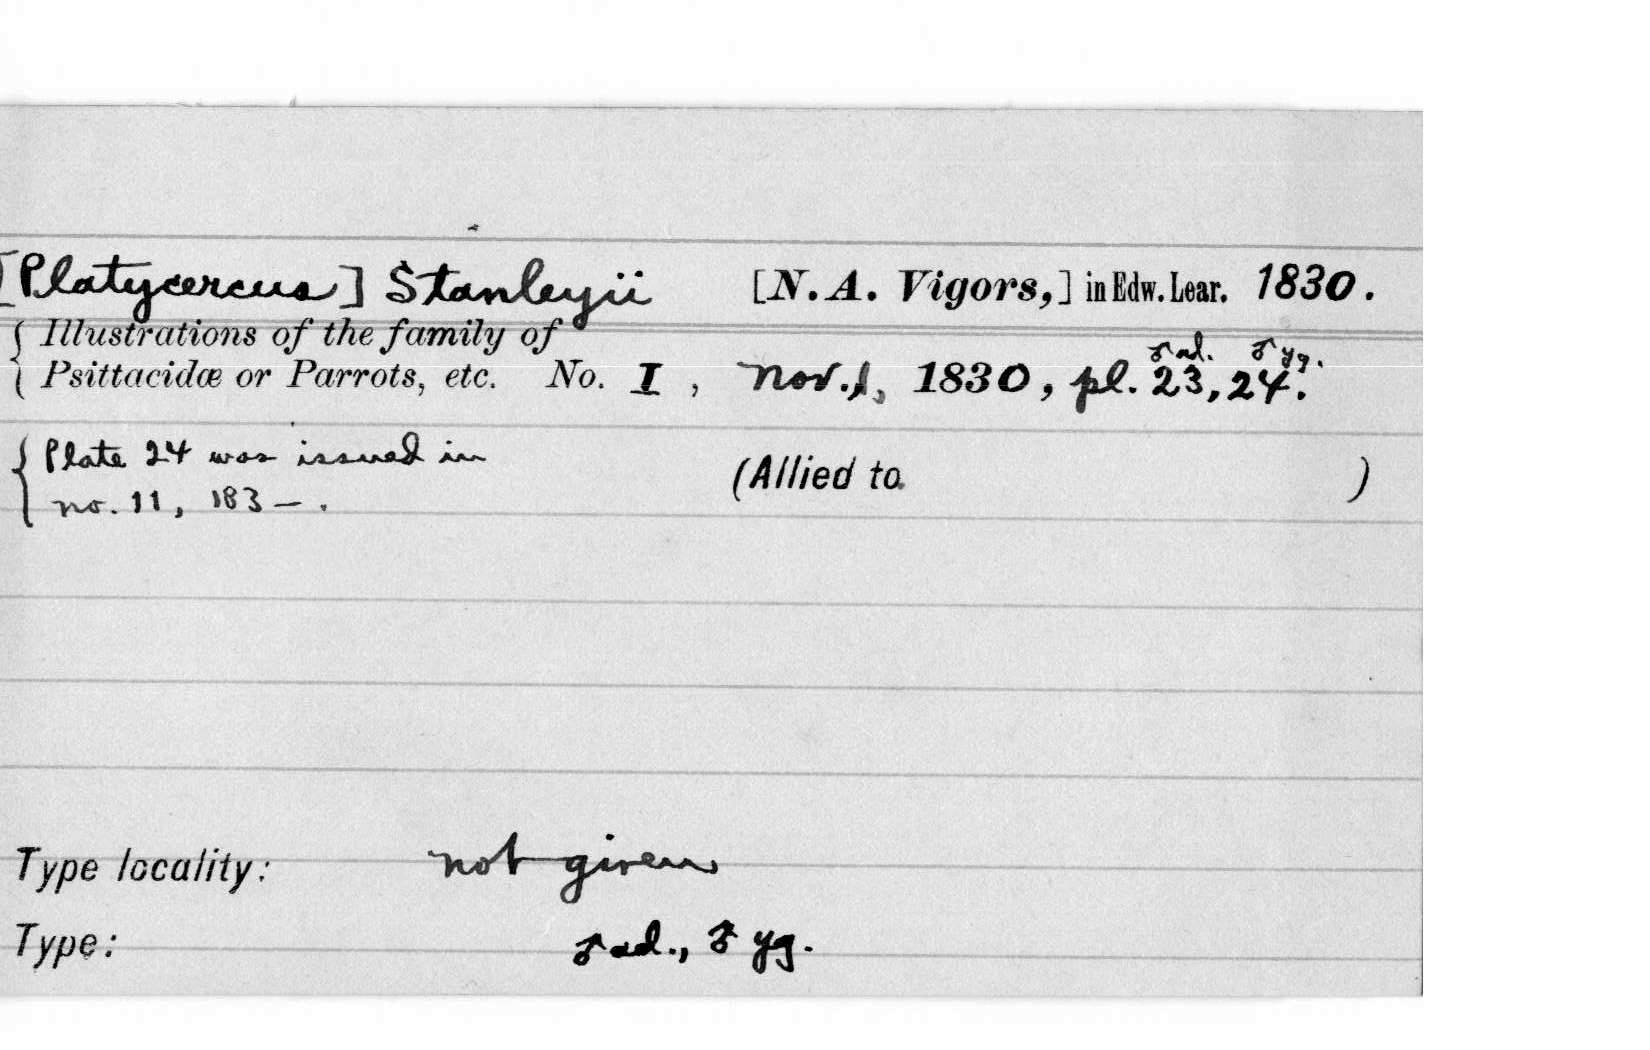 [Platycercus] Stanleyii [N. A. Vigors,] in Edw. Lear. 1830.
Illustrations of the family of
♂ ad. ♂ yg.
Psittacidæ or Parrots, etc. No. I, Nov. 1, 1830, pl. 23, 24.
Plate 24 was issued in
(Allied to )
no. 11, 183–.
Type locality: not given
Type: ♂ ad., ♂ yg.